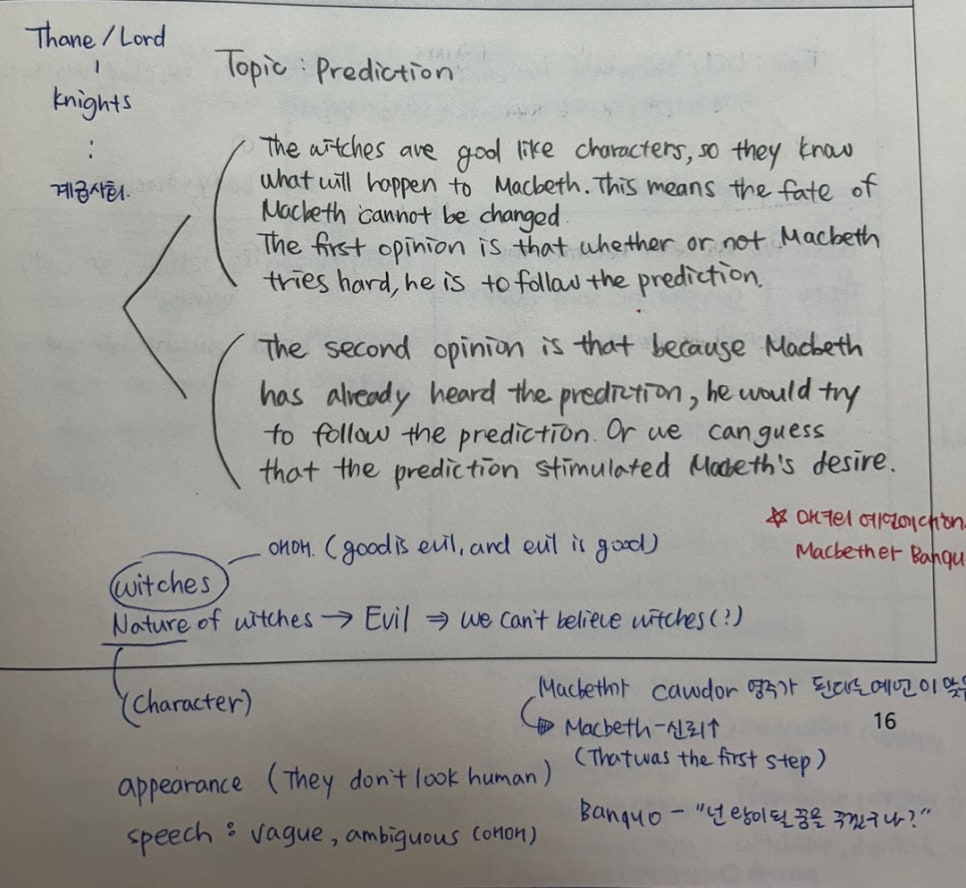 Thane / Lord
knights
계급사회.
Topic : Prediction
The witches are god like characters, so they know
what will happen to Macbeth. This means the fate of
Macbeth cannot be changed.
The first opinion is that whether or not Macbeth
tries hard, he is to follow the prediction.
The second opinion is that because Macbeth
has already heard the prediction, he would try
to follow the prediction. Or we can guess
that the prediction stimulated Macbeth's desire.
애매. (good is evil, and evil is good)
☆ 마녀의 예언에 대한
Macbeth와 Banqu
witches
Nature of witches → Evil ⇒ we can't believe witches(?)
(Character)
Macbeth가 cawdor 영주가 된다는 예언이 맞
Macbeth - 신뢰↑
16
(That was the first step)
appearance (They don't look human)
Banquo - "넌 왕이 될 꿈을 꾸겠구나?"
speech : vague, ambiguous (애매)